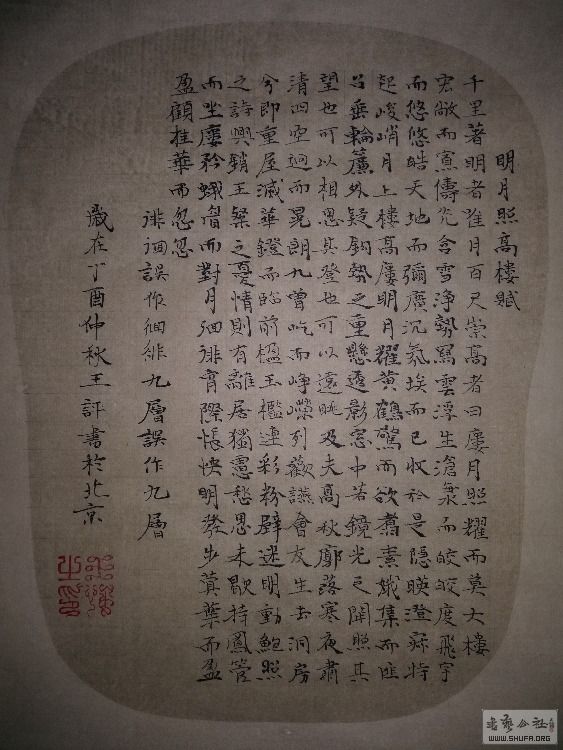 明月照高樓賦
千里著明者唯月百尺崇高者曰廔月照耀而莫大樓
宏敞而寡儔光含雪淨勢寫雲浮生滄海而皎皎度飛宇
而悠悠皓天地而彌廣沉氛埃而已收於是隱暎澄霽特
起峻峭月上樓高廔明月耀黃鶴驚而欲翥素娥集而匪
召垂輪簾外疑鈎勢之重懸透影窓中若鏡光之開照其
望也可以相思其登也可以遠眺及夫高秋廓落寒夜肅
清四空迥而晃朗九曾屹而崢嶸列歡讌會友生去洞房
兮即重屋滅華鐙而臨前楹玉檻連彩粉壁迷明動鮑照
之詩興銷王粲之憂情則有離居猶愁思未歇持鳳管
而坐廔矜蛾眉而對月徊徘霄際悵怏明發步蓂葉而盈
盈顧桂華而忽忽
徘徊誤作徊徘九層誤作九層
歲在丁酉仲秋王評書於北京
書藝公社
WWW.SHUFA.ORG